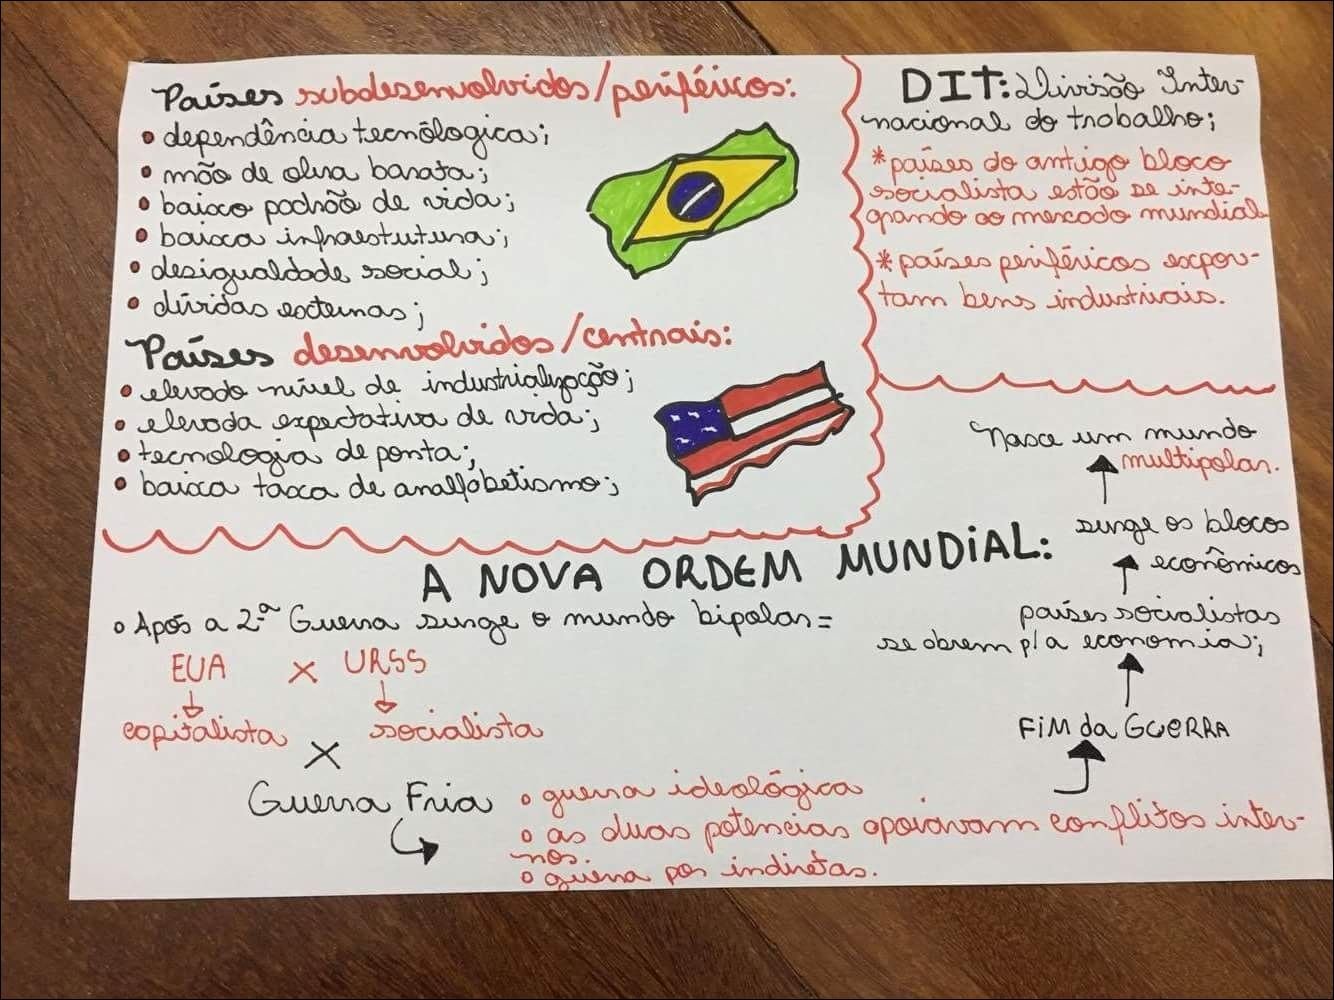 Países subdesenvolvidos/periféricos:
• dependência tecnólogica;
• mão de obra barata;
• baixo padrão de vida;
• baixa infraestutura;
• desigualdade social;
• dívidas externas;
Países desenvolvidos/centrais:
• elevado nível de industrialização;
• elevada expectativa de vida;
• tecnologia de ponta;
• baixa taxa de analfabetismo;
DIT: Divisão Inter-
nacional do trabalho;
*países do antigo bloco
socialista estão se inte-
grando ao mercado mundial
*países periféricos expor-
tam bens industriais.
A NOVA ORDEM MUNDIAL:
o Após a 2ª Guerra surge o mundo bipolar =
EUA X URSS
capitalista X socialista
Guerra Fria
o guerra ideológica
o as duas potencias apoiavam conflitos inter-
nos.
o guerra por indiretas.
Nasce um mundo
multipolar.
surge os blocos
econômicos
países socialistas
se abrem p/ a economia;
FIM da GUERRA